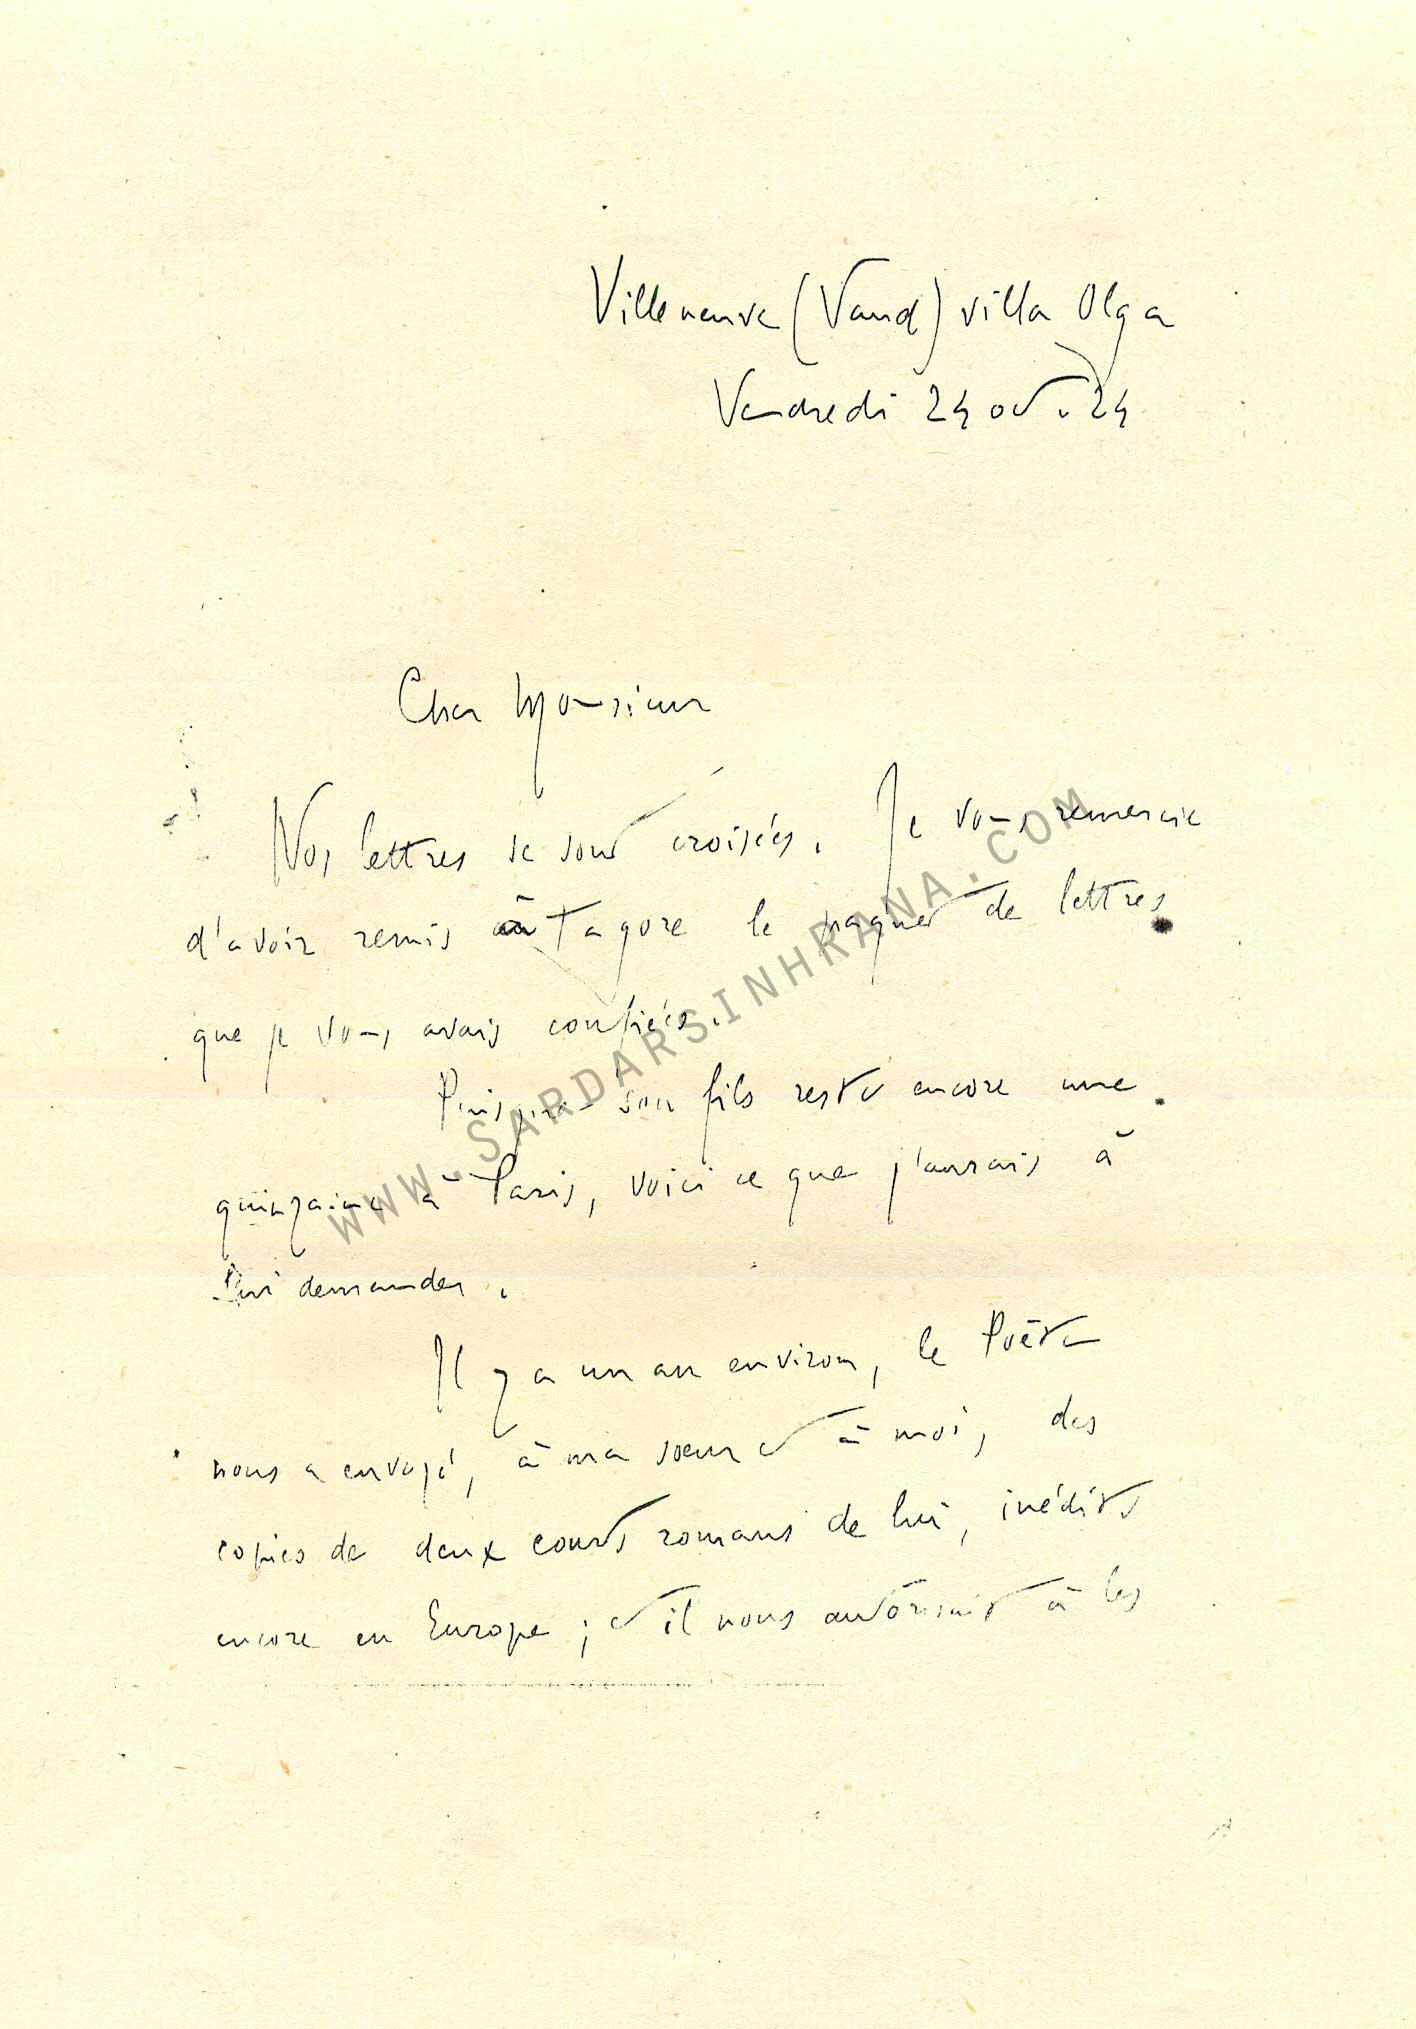 Villeneuve (Vaud) villa Olga
Vendredi 24 oct. 24
Cher Monsieur
Nos lettres se sont croisées. Je vous remercie
d'avoir remis à Tagore le paquet de lettres
que je vous avais confiées.
Puisque son fils reste encore une
quinzaine à Paris, voici ce que j'aurais à
lui demander.
Il y a un an environ, le Poète
nous a envoyé, à ma sœur et à moi, des
copies de deux courts romans de lui, inédits
encore en Europe ; et il nous autorisait à les
WWW.SARDARSINHRANA.COM